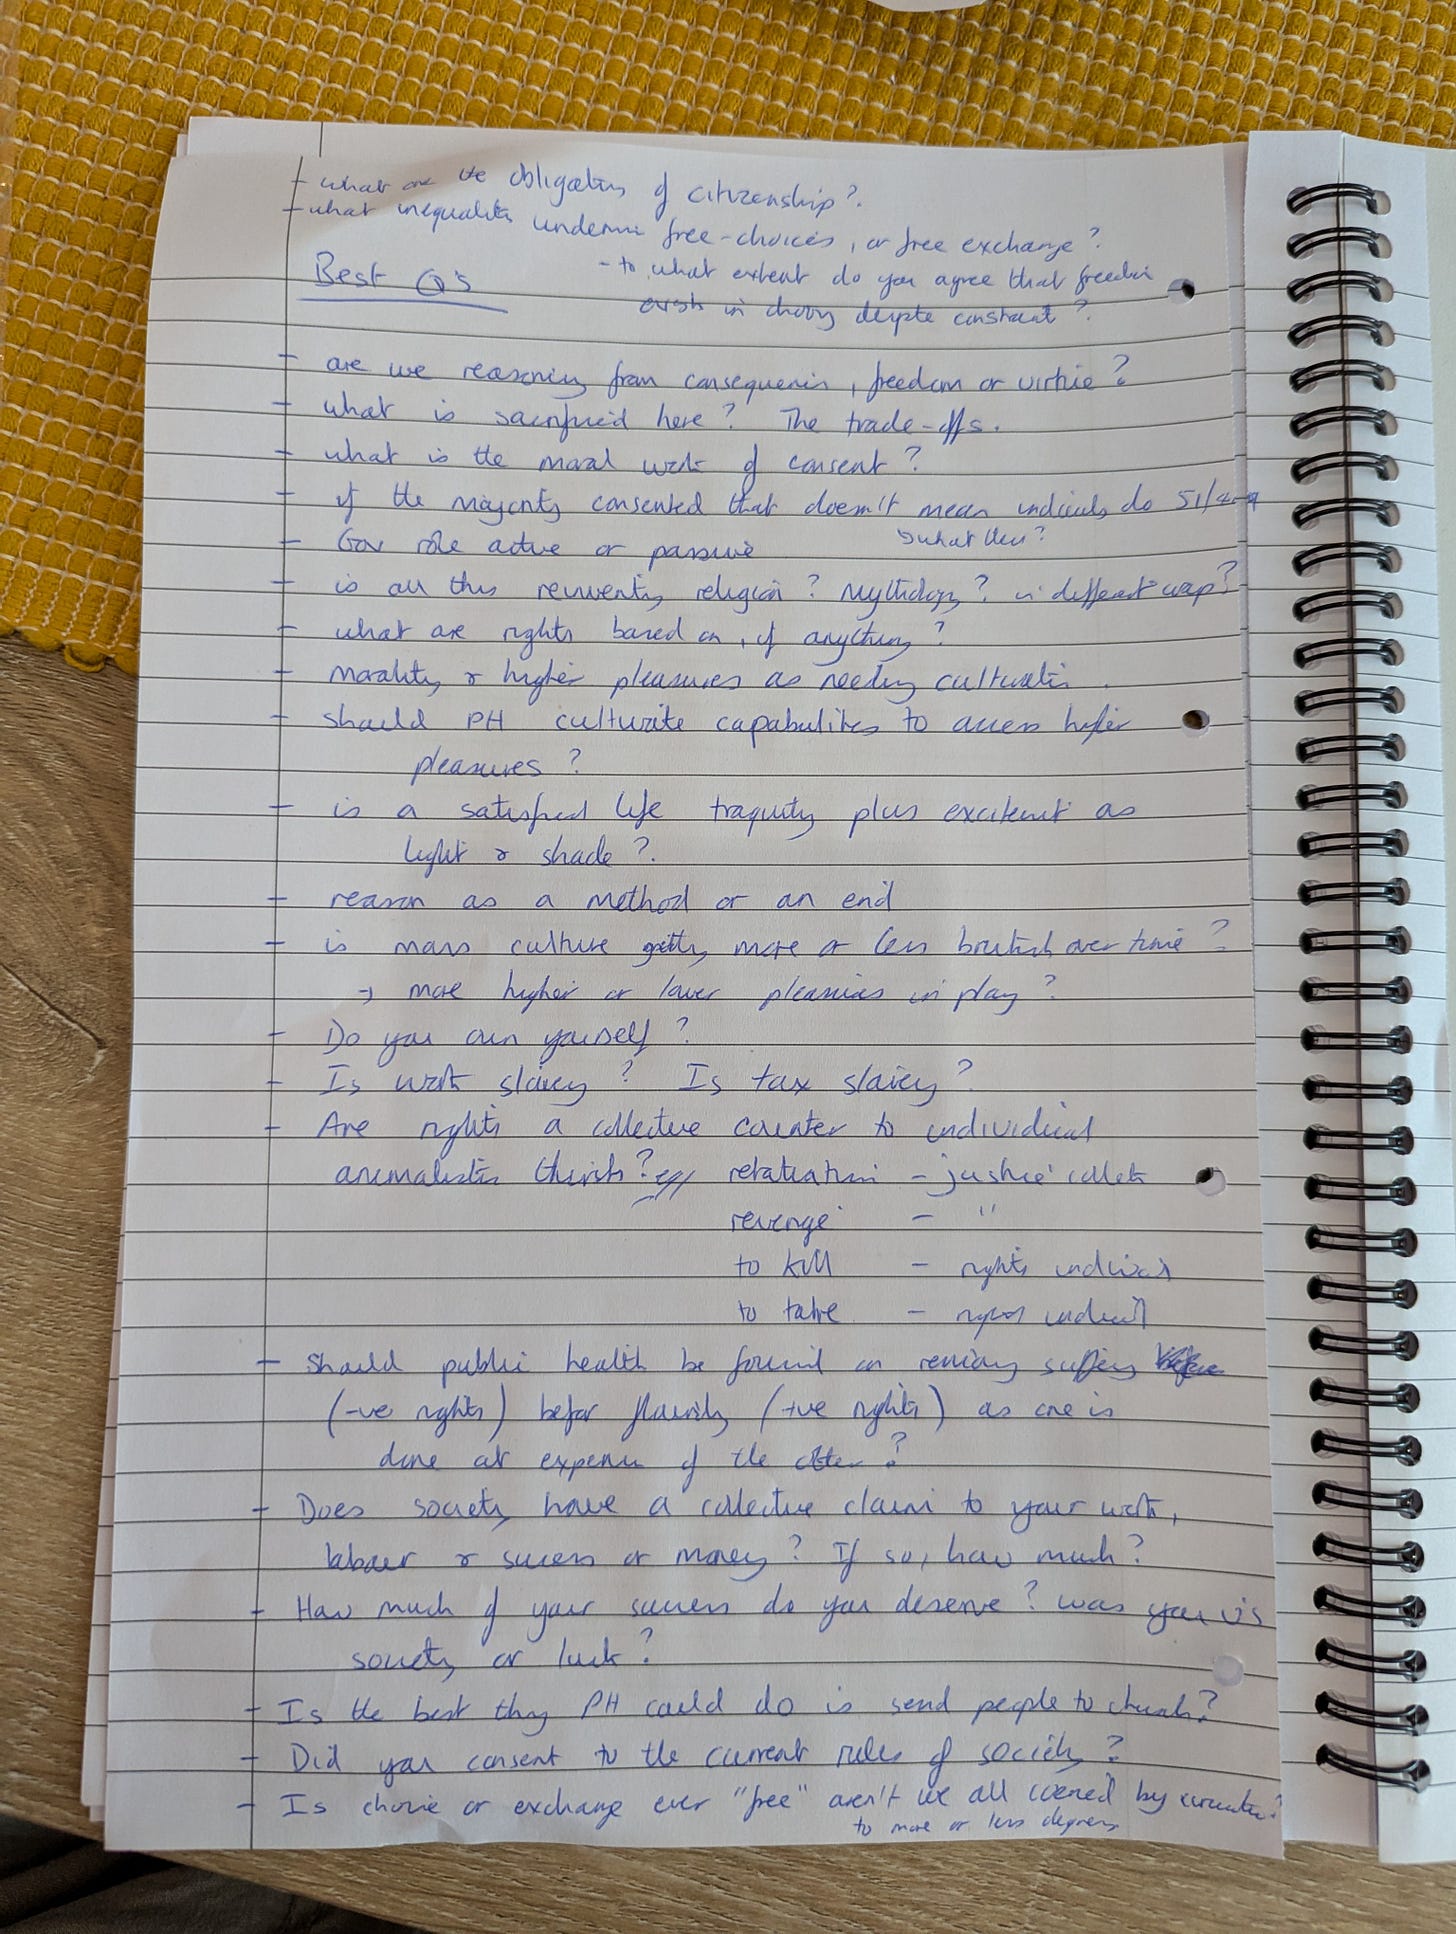 - what are the obligations of citizenship?
- what inequalities undermine free-choices, or free exchange?
- to what extent do you agree that freedom
exists in choosing despite constraint?
Best Q's
- are we reasoning from consequences, freedom or virtue?
- what is sacrificed here? The trade-offs.
- what is the moral work of consent?
- if the majority consented that doesn't mean individuals do 51/49
↳ what then?
- Gov role active or passive
- is all this reinventing religion? Mythology? in different wap?
- what are rights based on, if anything?
- morality & higher pleasures as needing cultivation.
- should PH cultivate capabilities to access higher
pleasures?
- is a satisfied life tranquility plus excitement as
light & shade?
- reason as a method or an end
- is mass culture getting more or less brutish over time?
→ more higher or lower pleasures in play?
- Do you own yourself?
- Is work slavery? Is tax slavery?
- Are rights a collective counter to individual
animalistic thirsts? eg retaliation - justice collective
revenge - "
to kill - rights individual
to take - rights individual
- Should public health be found on removing suffering
(-ve rights) before flourishing (+ve rights) as one is
done at expense of the other?
- Does society have a collective claim to your work,
labour & success or money? If so, how much?
- How much of your success do you deserve? was you vs
society or luck?
- Is the best thing PH could do is send people to church?
- Did you consent to the current rules of society?
- Is choice or exchange ever "free" aren't we all coerced by circumstance?
to more or less degrees